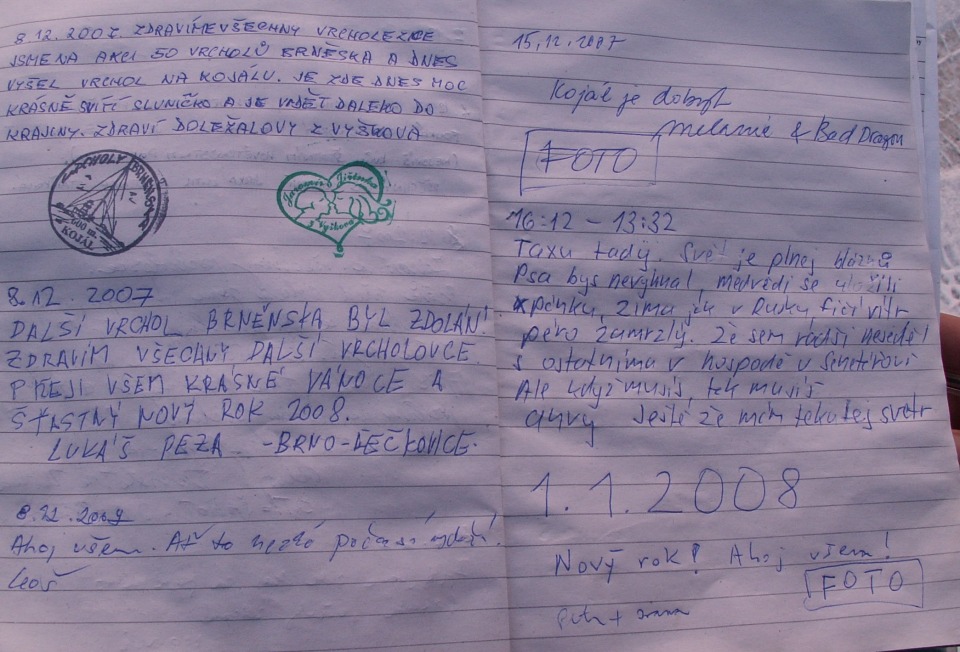 8.12.2007. ZDRAVÍME VŠECHNY VRCHOLEZCE
JSME NA AKCI 50 VRCHOLŮ BRNĚSKA A DNES
VYŠEL VRCHOL NA KOJÁLU. JE ZDE DNES MOC
KRÁSNĚ SVÍTÍ SLUNÍČKO A JE VIDĚT DALEKO DO
KRAJINY. ZDRAVÍ DOLEŽALOVY Z VYŠKOVA
VRCHOLY BRNĚNSKA
600 m.
KOJÁL
Jaromír Jiřinka
z Vyškova
8.12.2007
DALŠÍ VRCHOL BRNĚNSKA BYL ZDOLÁN!
ZDRAVÍM VŠECHNY DALŠÍ VRCHOLOVCE
PŘEJI VŠEM KRÁSNÉ VÁNOCE A
ŠŤASTNÝ NOVÝ ROK 2008.
LUKÁŠ PEZA - BRNO-ŘEČKOVICE.
8.12.2007
Ahoj všem. Ať to hezké počasí vydrží!
Leoš
15.12.2007
Kojál je dobyt
Melanie & Bad Dragon
FOTO
16:12 - 13:32
Taxu tady. Svět je plnej bláznů
Psa bys nevyhnal, medvědi se uložili
k spánku, zima jak v Rusku, fičí vítr
péro zamrzlý. Že sem radši neseděl
s ostatníma v hospodě v
Ale když musíš, tek musíš
Ještě že mám tekutej svetr
1.1.2008
Nový rok! Ahoj všem!
FOTO
Petr +